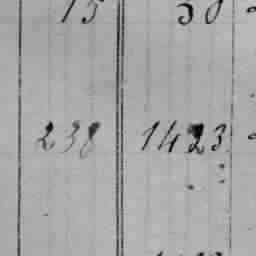 15 30
238 1423